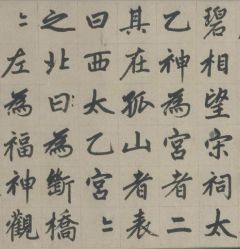 碧相望宋祠太
乙神為宮者二
其在孤山者表
曰西太乙宮〻
之北曰為斷橋
〻左為福神觀